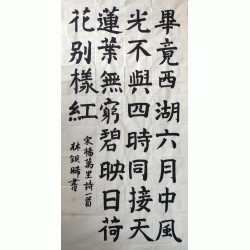 畢竟西湖六月中風
光不與四時同接天
蓮葉無窮碧映日荷
花别樣紅
宋楊萬里詩一首
林書